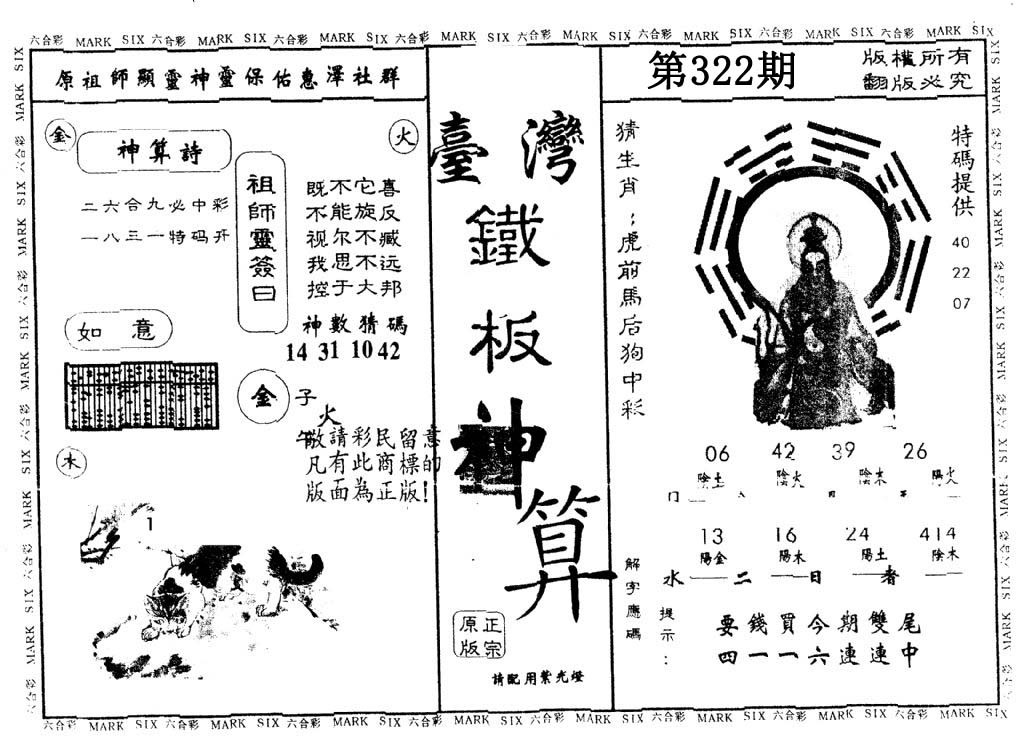 六合彩 MARK SIX 六合彩 MARK SIX 六合彩 MARK SIX 六合彩 MARK SIX 六合彩 MARK SIX 六合彩 MARK SIX 六合彩 MARK SIX 六合彩 MARK SIX
原祖師顯靈神靈保佑惠澤社群
金
神算詩
火
二六合九必中彩
一八三一特码开
祖師靈簽曰
既不它喜
不能旋反
视尔不臧
我思不远
控于大邦
神數猜碼
14 31 10 42
如意
金
子
火
午
敬請彩民留意
凡有此商標的
版面為正版!
木
1
臺灣
鐵
板
神
算
正宗
原版
請配用紫光燈
第322期
版權所有
翻版必究
猜生肖:虎前馬后狗中彩
特碼提供
40
22
07
06 42 39 26
陰土 陰火 陰木 陽火
13 16 24 414
陽金 陽木 陽土 陰木
解字應碼
水二日者
提示:
要錢買今期雙尾
四一一六連連中
六合彩 MARK SIX 六合彩 MARK SIX 六合彩 MARK SIX 六合彩 MARK SIX 六合彩 MARK SIX 六合彩 MARK SIX 六合彩 MARK SIX 六合彩 MARK SIX